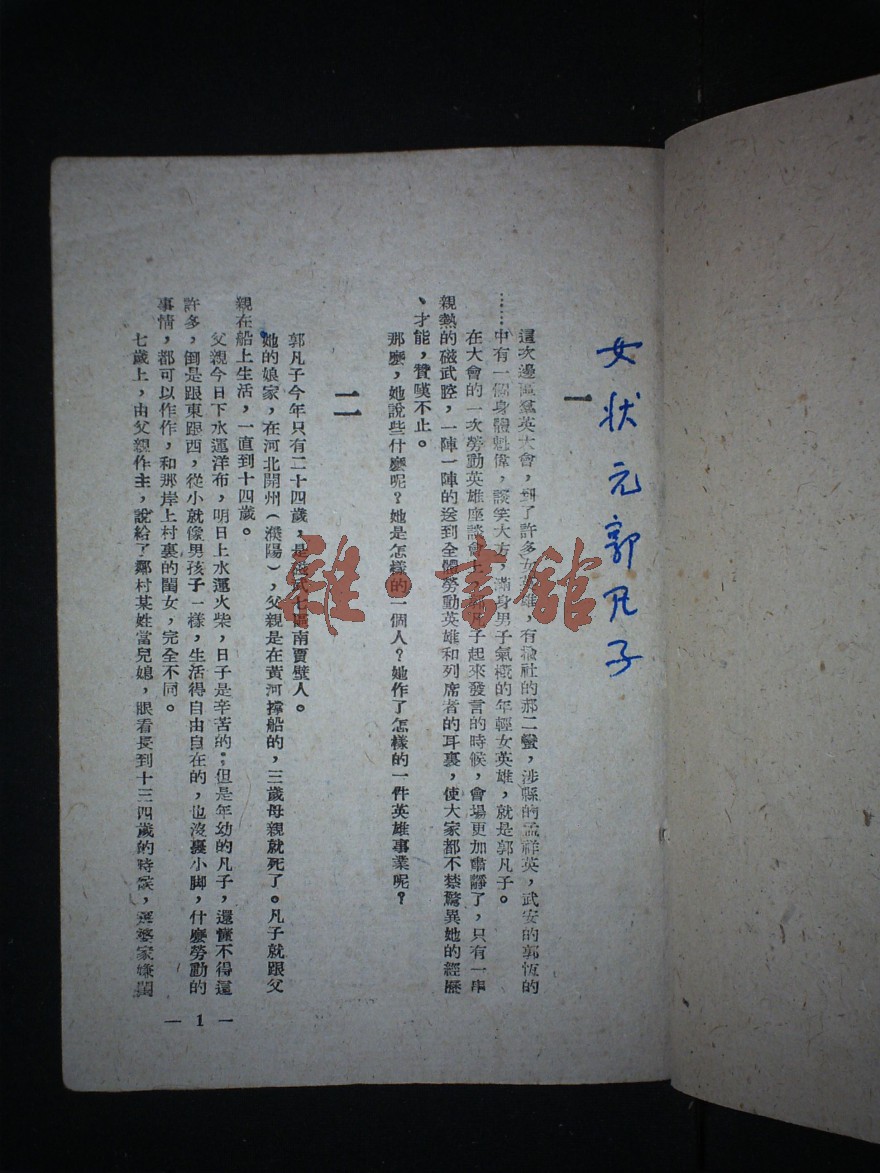 女状元郭凡子
一
這次邊區羣英大會，到了許多女英雄，有機社的郝二蠻，涉縣的孟祥英，武安的郭恆的
……中有一個身體魁偉，談笑大方，滿身男子氣概的年輕女英雄，就是郭凡子。
在大會的一次勞動英雄座談會上，郭凡子起來發言的時候，會場更加肅靜了，只有一串
親熱的磁武腔，一陣一陣的送到全體勞動英雄和列席者的耳裏，使大家都不禁驚異她的經歷
、才能，贊嘆不止。
那麽，她說些什麽呢？她是怎樣的一個人？她作了怎樣的一件英雄事業呢？
二
郭凡子今年只有二十四歲，是磁武七區南賈壁人。
她的娘家，在河北開州（濮陽），父親是在黃河撐船的，三歲母親就死了。凡子就跟父
親在船上生活，一直到十四歲。
父親今日下水運洋布，明日上水運火柴，日子是辛苦的；但是年幼的凡子，還懂不得這
許多，倒是跟東跟西，從小就像男孩子一樣，生活得自由自在的，也沒裹小脚，什麽勞動的
事情，都可以作作，和那岸上村裏的閨女，完全不同。
七歲上，由父親作主，說給了鄰村某姓當兒媳，眼看長到十三四歲的時候，婆家嫌閨
— 1 —
雜·書舘